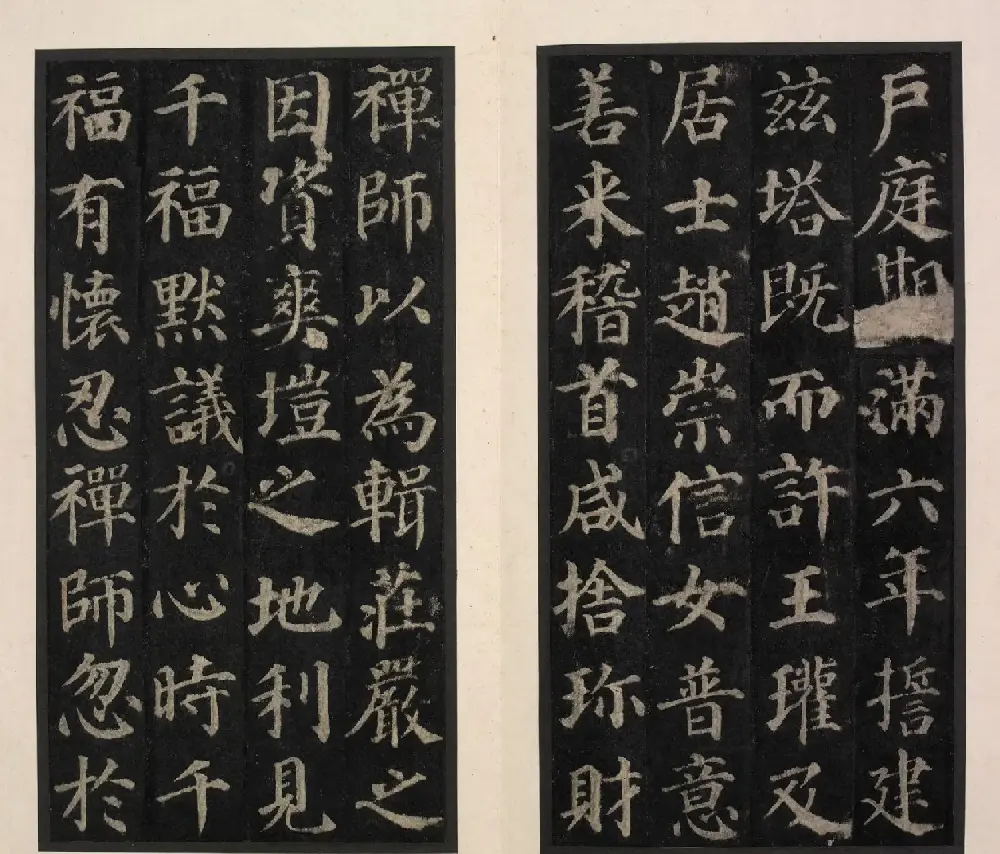 戶庭期滿六年誓建
兹塔既而許王瓘及
居士趙崇信女普意
善来稽首咸捨珎財
禪師以為輯莊嚴之
因資爽塏之地利見
千福默議於心時千
福有懷忍禪師忽於